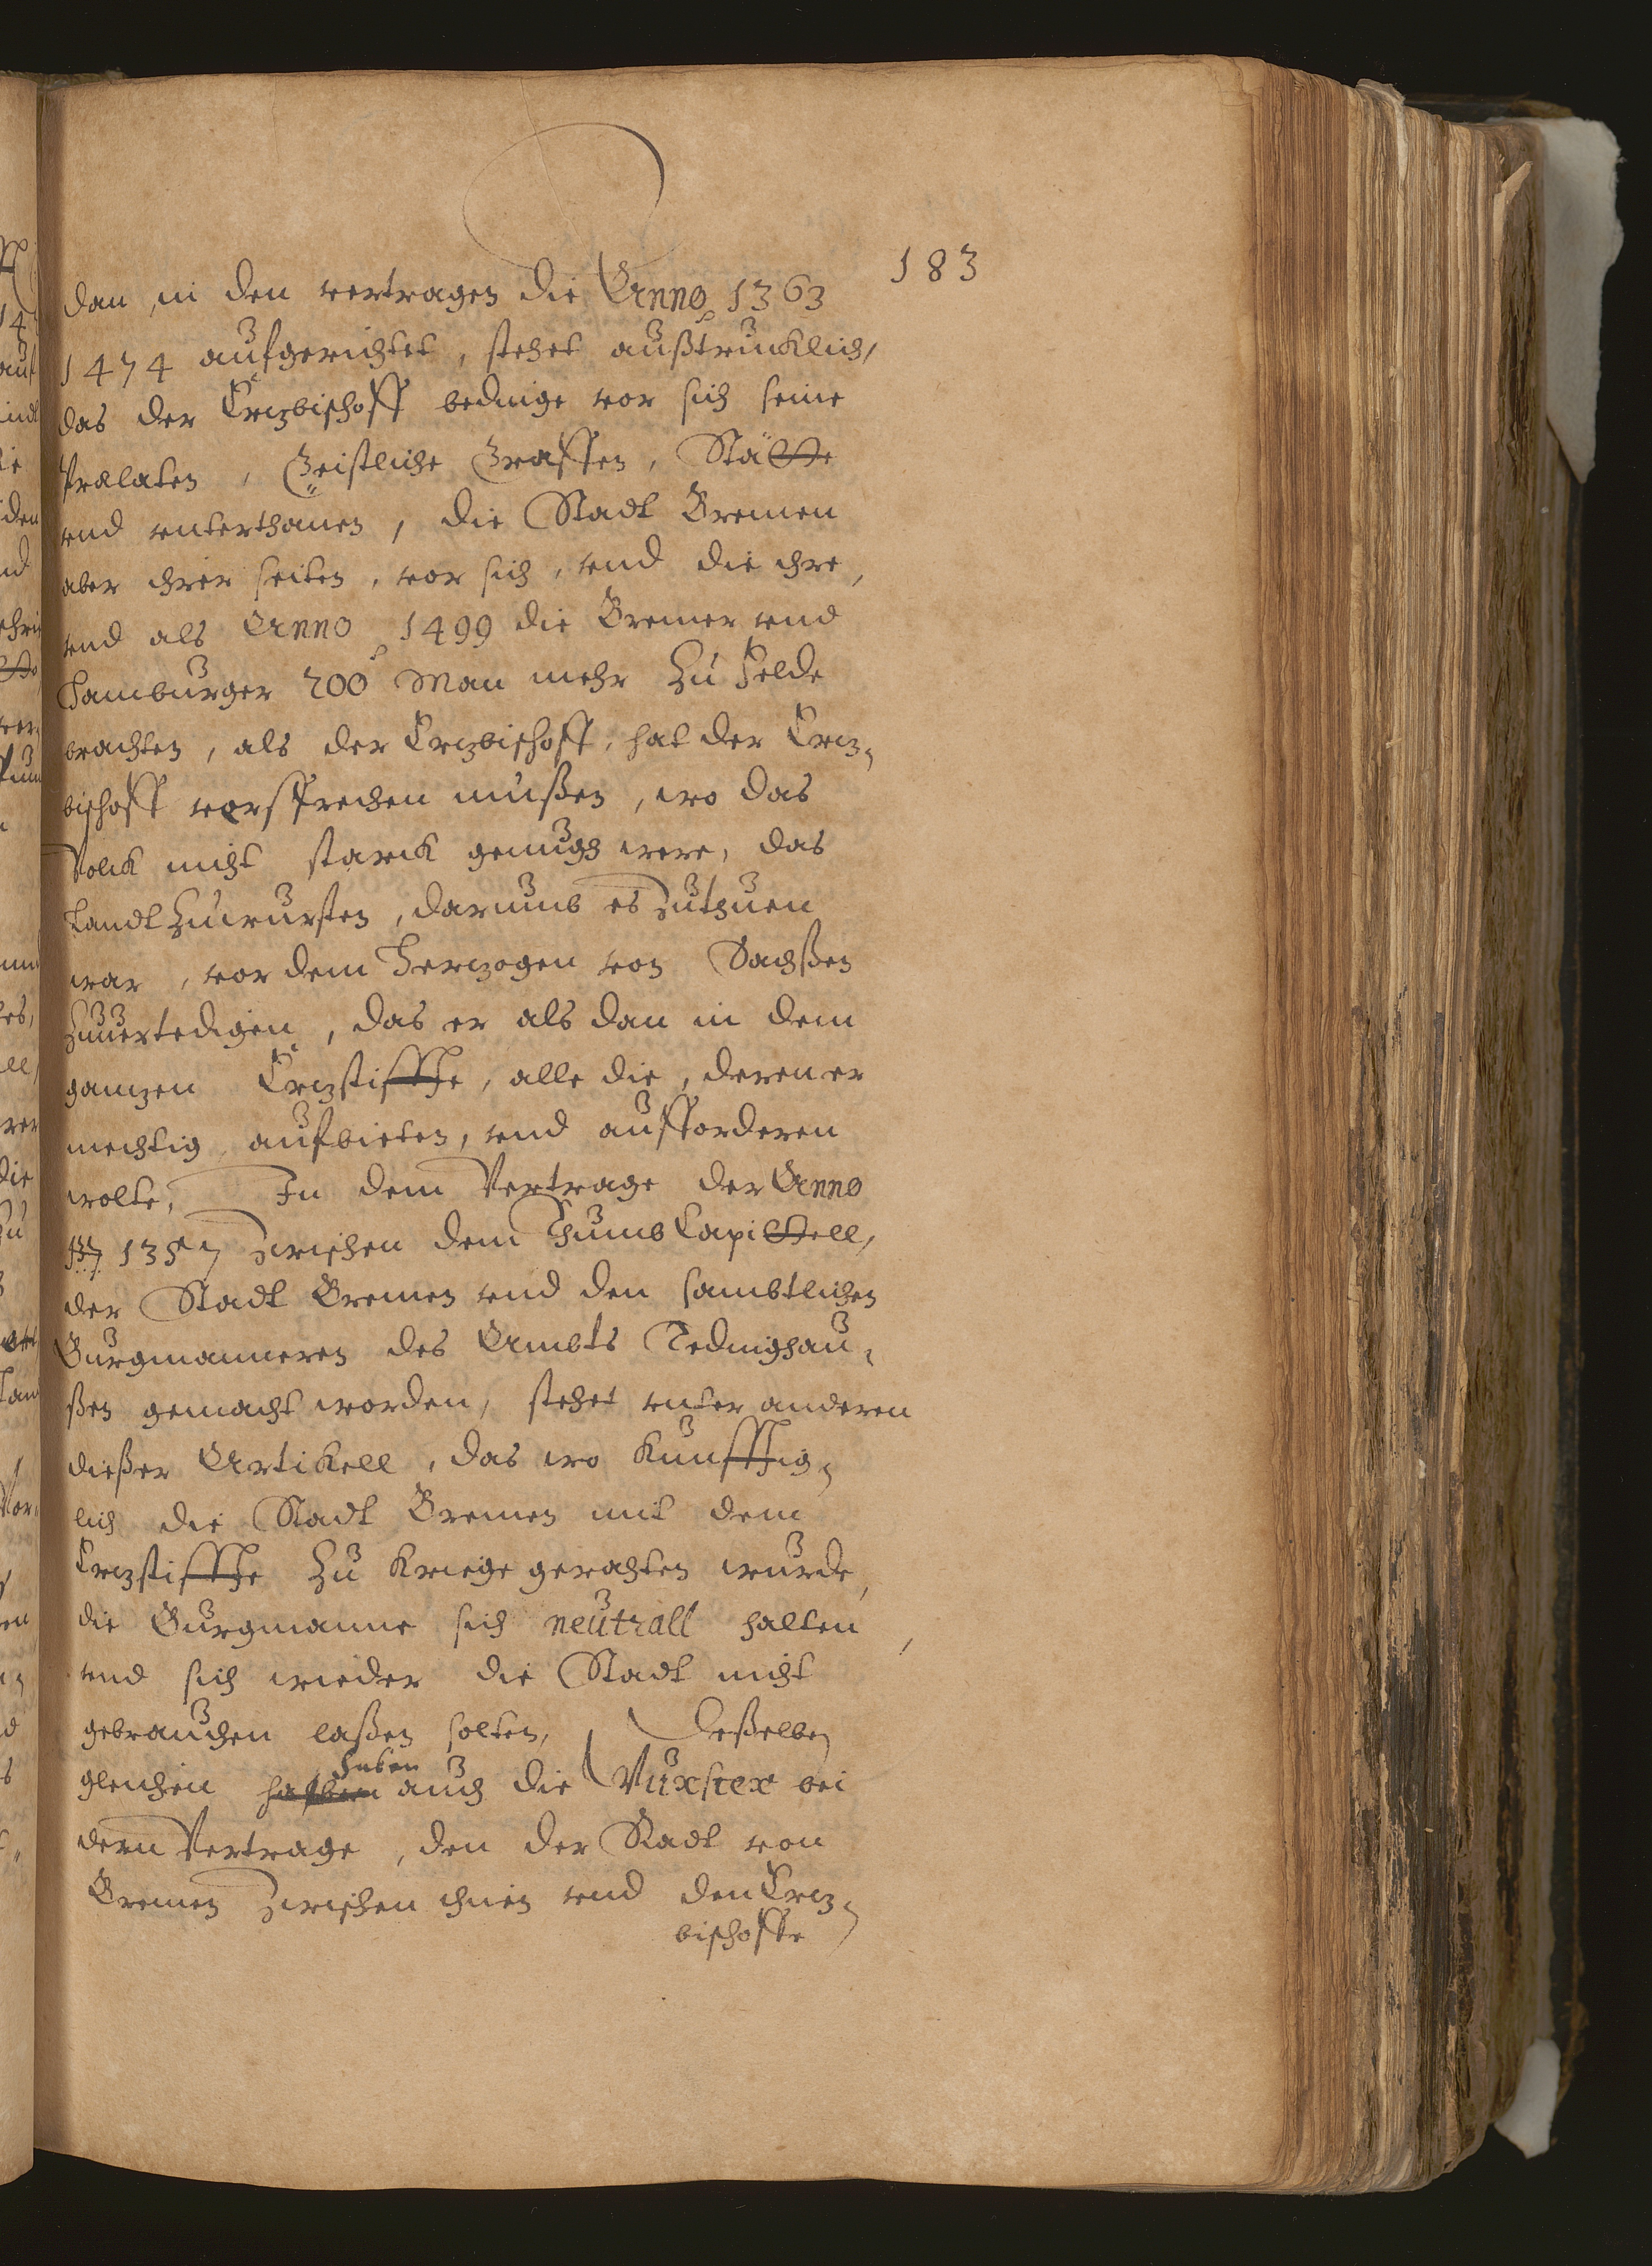 183
dan in den vertragen die Anno 1363
1474 aufgerichtet, stehet außtrucklich,
das der Ertzbischoff bedinge vor sich seine
Prælaten, Geistliche Graffen, Städte
vnd vnterthanen, die Stadt Bremen
aber ihrer seiten, vor sich, vnd die ihre,
vnd als Anno 1499 die Bremer vnd
Hamburger 200 Man mehr zu Felde
brachten, als der Ertzbischoff, hat der Ertz-
bischoff vorsprechen mußen, wo das
Volck nicht starck genugh were, das
Landt zu wursten, darumb es zuthuen
war, vor dem Hertzogen von Sachßen
zuuertedigen, das er als dan in dem
gantzen Ertzstiffte, alle die, deren er
mechtig, aufbieten, vnd aufforderen
wolte, In dem Vertrage der Anno
1357 zwischen dem Thumb Capittell,
der Stadt Bremen vnd den sambtlichen
Burgmanneren des Ambts Tedinghau-
ßen gemacht worden, stehet vnter anderen
dießer Artikell, das wo kunfftig-
lich die Stadt Bremen mit dem
Ertzstiffte zu kriege gerahten wurde,
die Burgmanne sich neutrall halten,
vnd sich wieder die Stadt nicht
gebrauchen laßen solten, Deßelben
gleichen haben auch die bei
dem Vertrage, den der Radt von
Bremen zwischen ihnen vnd den Ertz-
bischoffe